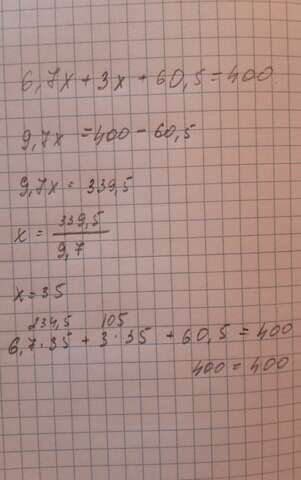 6,7x + 3x + 60,5 = 400
9,7x = 400 - 60,5
9,7x = 339,5
x = 339,5 / 9,7
x = 35
234,5 105
6,7 · 35 + 3 · 35 + 60,5 = 400
400 = 400